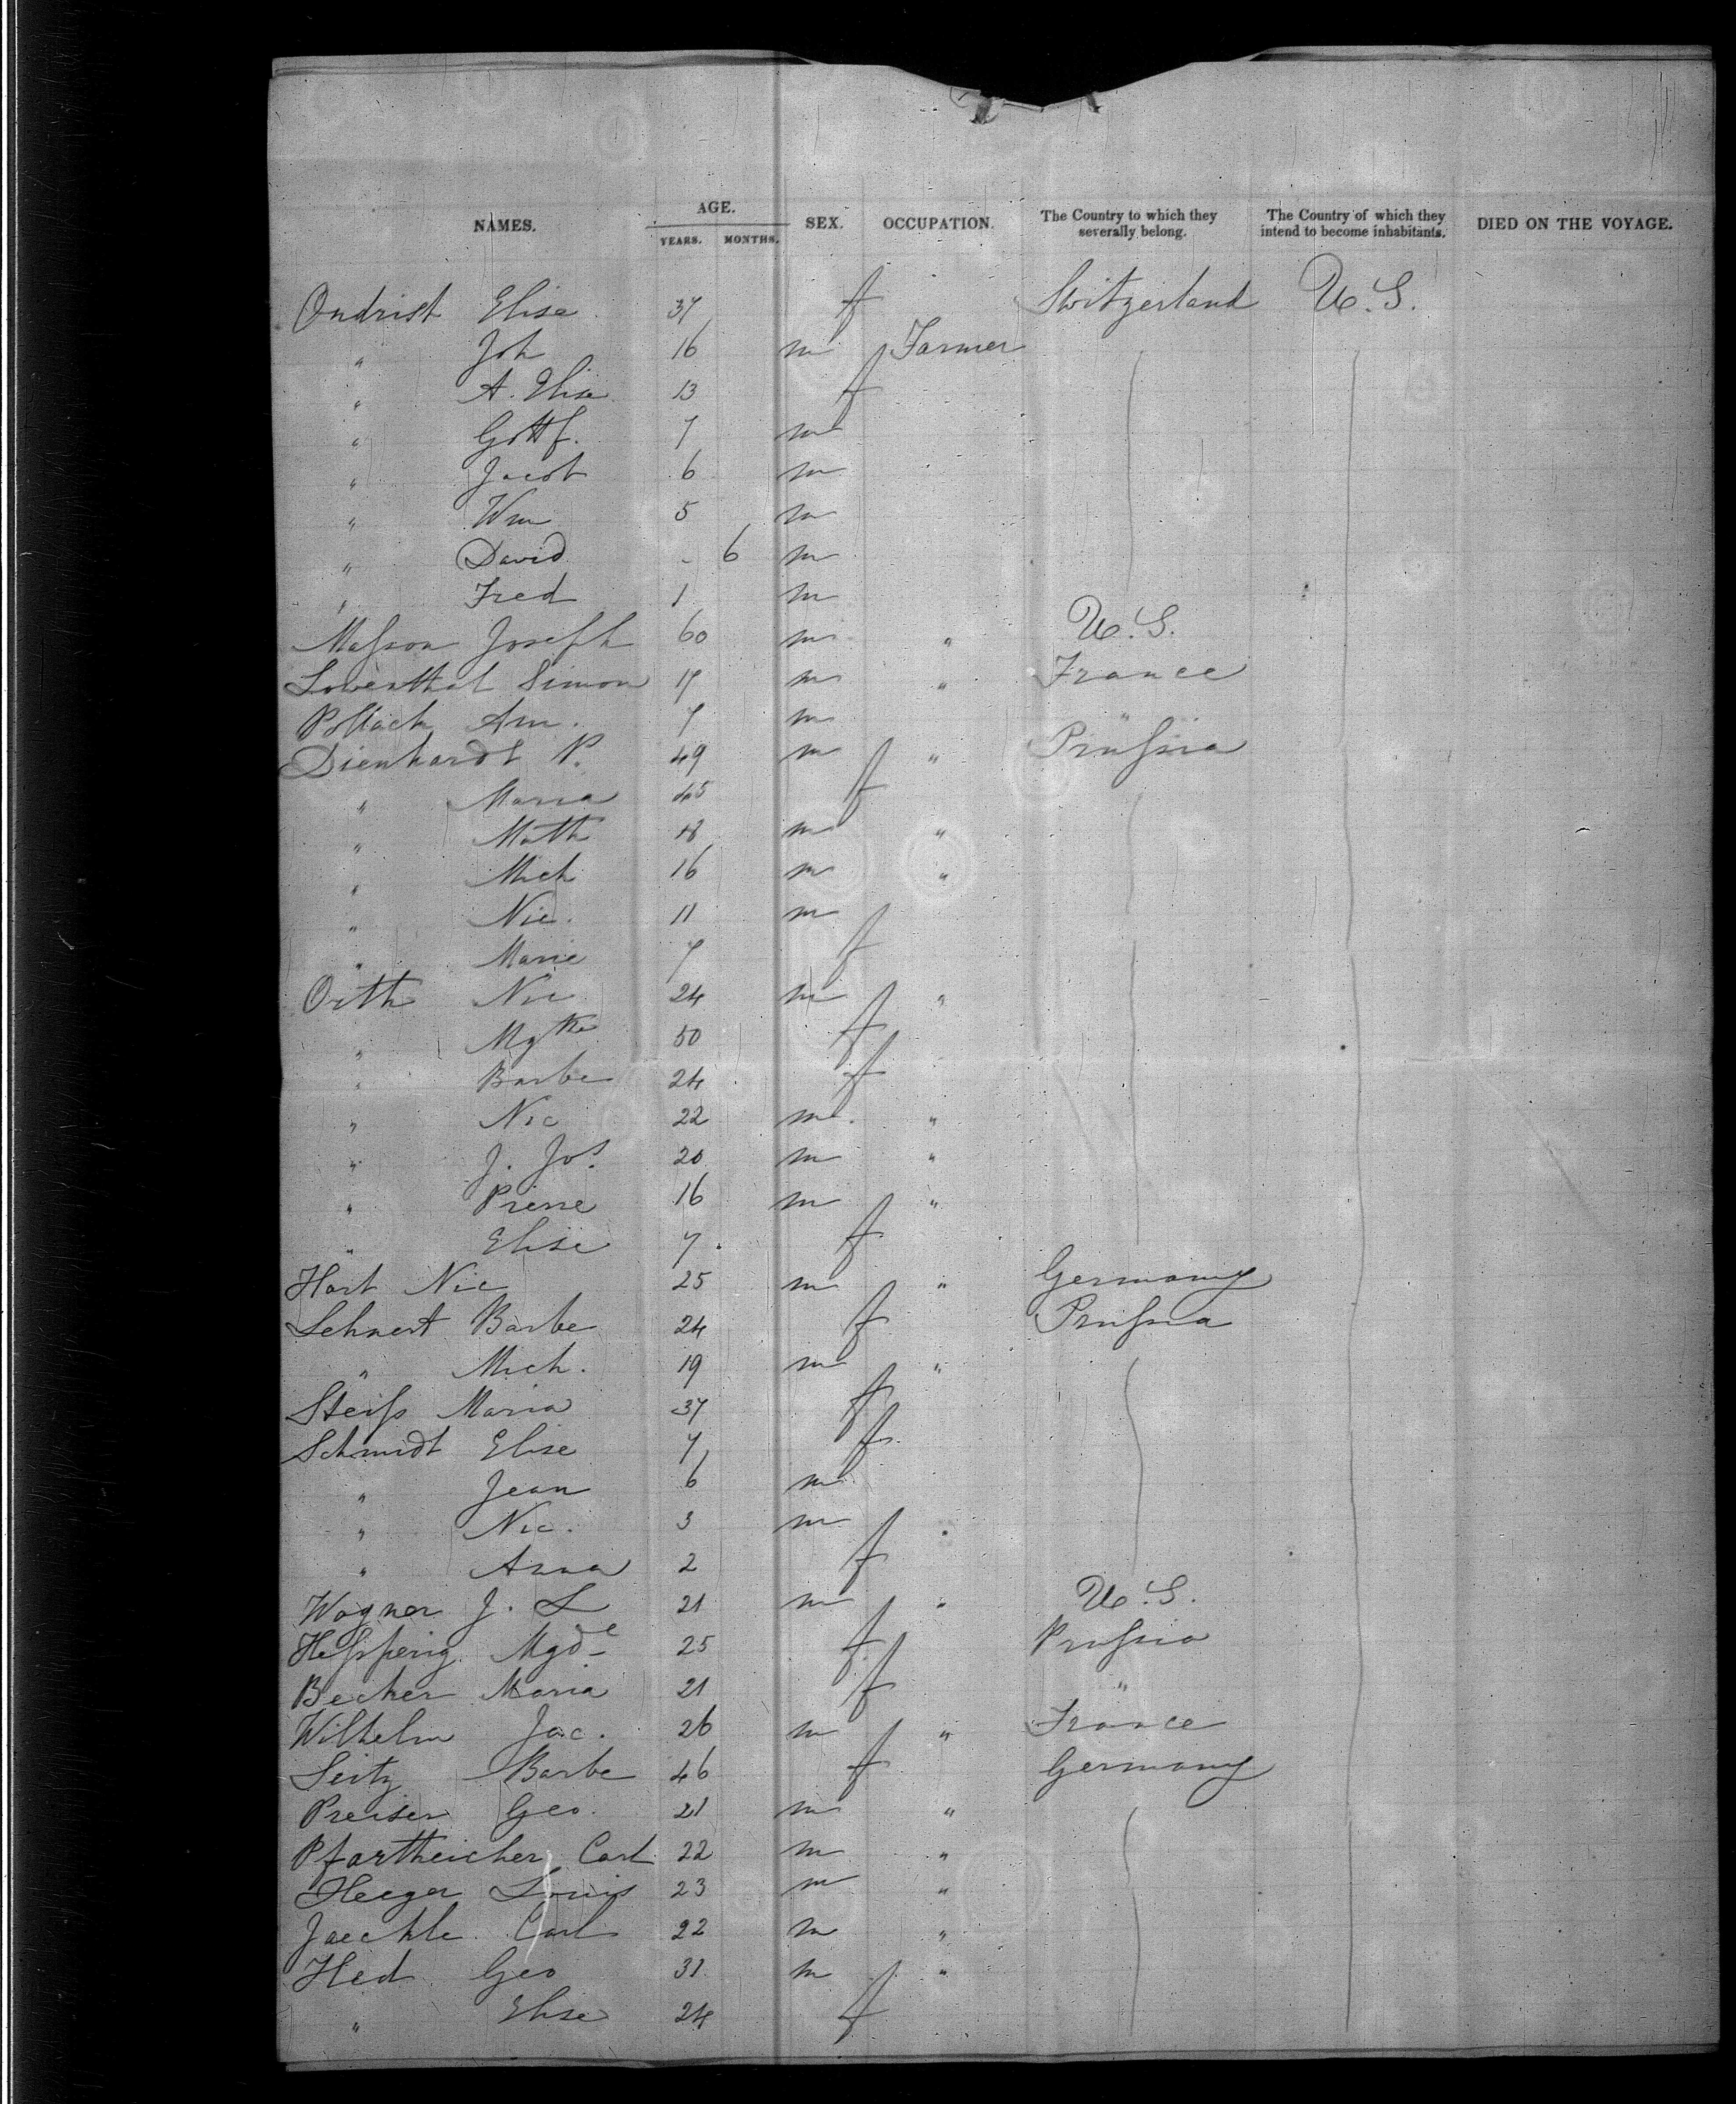 NAMES. AGE. YEARS. MONTHS. SEX. OCCUPATION. The Country to which they severally belong. The Country of which they intend to become inhabitants. DIED ON THE VOYAGE.
Ondrist Elise 37 f Switzerland U.S.
" Joh 16 m Farmer
" A. Elise 13 f
" Gottf. 7 m
" Jacob 6 m
" Wm 5 m
" David - 6 m
" Fred 1 m
Masson Joseph 60 m " U.S.
Lowenthal Simon 17 m " France
Pollack Am. 7 m "
Dienhardt P. 49 m " Prussia
" Maria 45 f
" Math 18 m "
" Mich 16 m "
" Nic. 11 m
" Marie 7 f
Orth Nic 24 m "
" Mgthe 50 f
" Barbe 24 f
" Nic 22 m "
" J. Jos. 20 m "
" Pierre 16 m "
" Elise 7 f
Hart Nic 25 m " Germany
Lehnert Barbe 24 f Prussia
" Mich. 19 m "
Steiss Maria 37 f
Schmidt Elise 7 f
" Jean 6 m
" Nic. 3 m
" Anna 2 f
Wagner J. L 21 m " U.S.
Hessperig Mgde 25 f Prussia
Becker Maria 21 f "
Wilhelm Jac. 26 m " France
Seitz Barbe 46 f Germany
Preiser Geo. 21 m "
Pfortheicher Carl 22 m "
Heeger Louis 23 m "
Jaeckle Carl 22 m "
Hed Geo 31 m "
" Elise 24 f